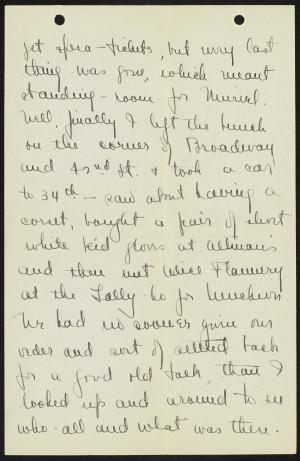 get opera-tickets, but every last
thing was gone, which meant
standing-room for Muriel.
Well, finally I left the bunch
on the corner of Broadway
and 42nd St. & took a car
to 34th — saw about having a
corset, bought a pair of short
white kid gloves at Altman's
and then met Alice Flannery
at the Tally-ho for luncheon.
We had no sooner given our
order and sort of settled back
for a good old talk, than I
looked up and around to see
who-all and what was there.